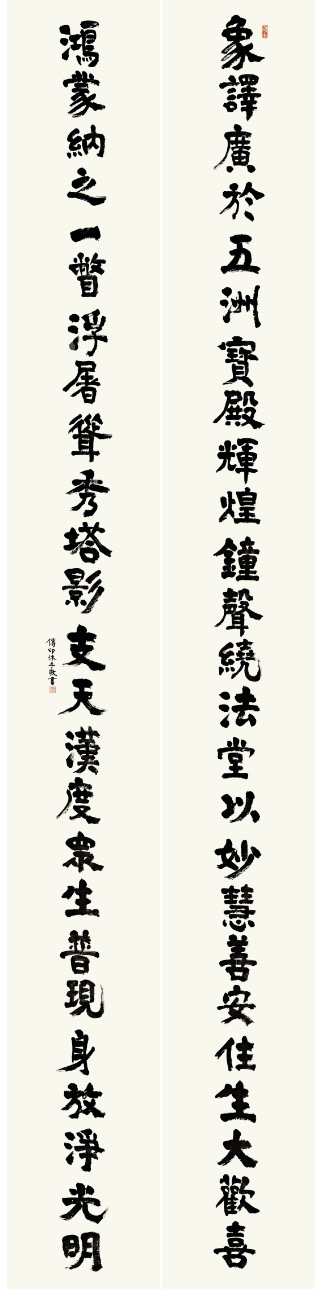 象譯廣於五洲寶殿輝煌鐘聲繞法堂以妙慧善安住生大歡喜
鴻蒙納之一瞥浮屠聳秀塔影支天漢度眾生普現身放淨光明
傳印沐手敬書